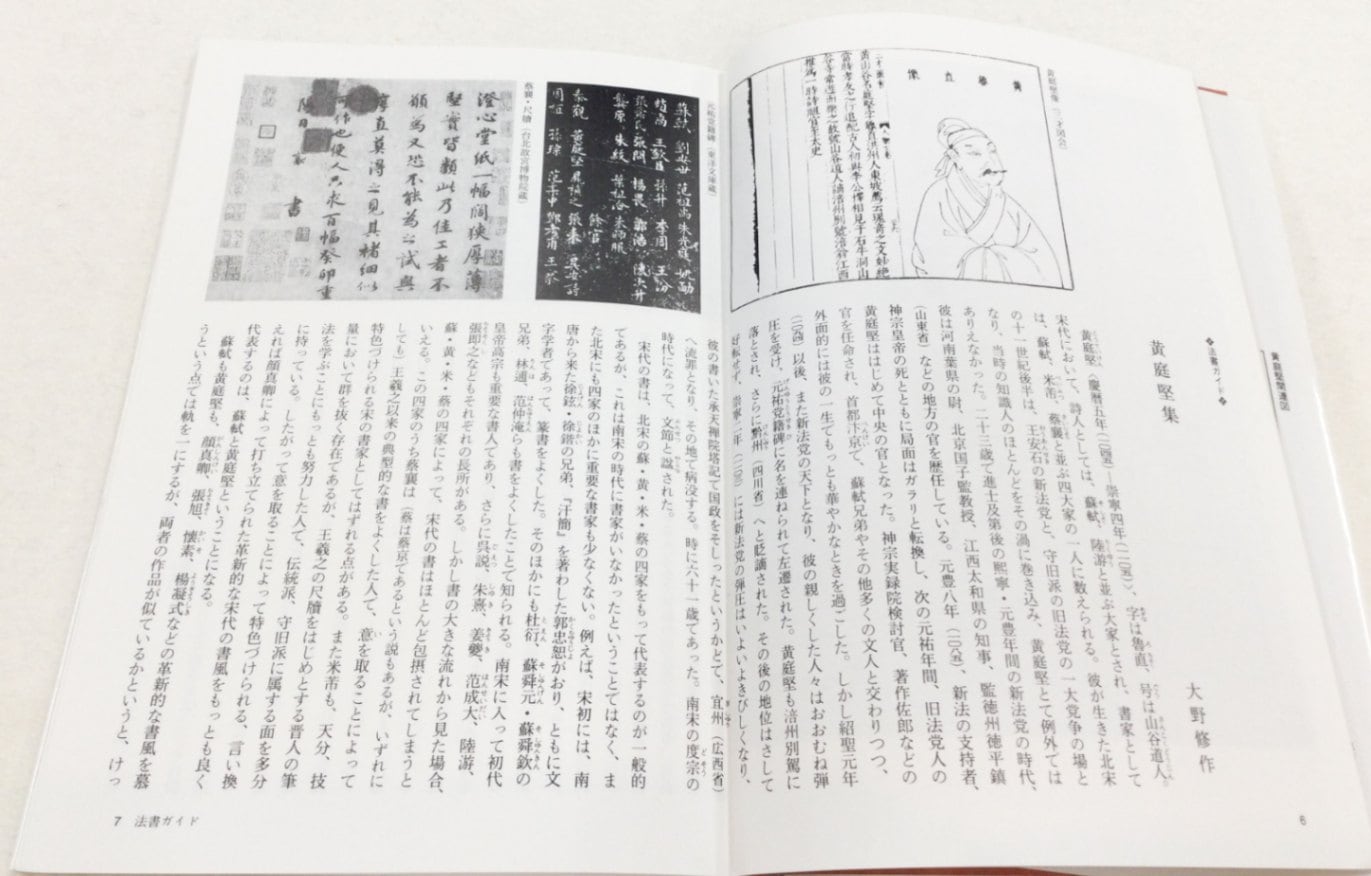 黄庭堅関連図
❖法書ガイド❖
黄庭堅集
大野修作
黄庭堅(慶暦五年(一〇四五)―崇寧四年(一一〇五))、字は魯直、号は山谷道人、
宋代において、詩人としては、蘇軾、陸游と並ぶ大家とされ、書家として
は、蘇軾、米芾、蔡襄と並ぶ四大家の一人に数えられる。彼が生きた北宋
の十一世紀後半は、王安石の新法党と、守旧派の旧法党の一大党争の場と
なり、当時の知識人のほとんどをその渦に巻き込み、黄庭堅とて例外では
ありえなかった。二十三歳で進士及第後の熙寧・元豊年間の新法党の時代、
彼は河南葉県の尉、北京国子監教授、江西太和県の知事、監徳州徳平鎮
(山東省)などの地方の官を歴任している。元豊八年(一〇八五)、新法の支持者、
神宗皇帝の死とともに局面はガラリと転換し、次の元祐年間、旧法党人の
黄庭堅ははじめて中央の官となった。神宗実録院検討官、著作佐郎などの
官を任命され、首都汴京で、蘇軾兄弟やその他多くの文人と交わりつつ、
外面的には彼の一生でもっとも華やかなときを過ごした。しかし紹聖元年
(一〇九四)以後、また新法党の天下となり、彼の親しくした人々はおおむね弾
圧を受け、元祐党籍碑に名を連ねられて左遷された。黄庭堅も涪州別駕に
落とされ、さらに黔州(四川省)へと貶謫された。その後の地位はさして
好転せず、崇寧二年(一一〇三)には新法党の弾圧はいよいよきびしくなり、
黄庭堅像(三才図会)
黄魯直像
6
彼の書いた承天禅院塔記で国政をそしったというかどで、宜州(広西省)
へ流罪となり、その地で病没する。時に六十一歳であった。南宋の度宗の
時代になって、文節と諡された。
宋代の書は、北宋の蘇・黄・米・蔡の四家をもって代表するのが一般的
であるが、これは南宋の時代に書家がいなかったということではなく、ま
た北宋にも四家のほかに重要な書家も少なくない。例えば、宋初には、南
唐から来た徐鉉・徐鍇の兄弟、『汗簡』を著わした郭忠恕がおり、ともに文
字学者であって、篆書をよくした。そのほかにも杜衍、蘇舜元・蘇舜欽の
兄弟、林逋、范仲淹らも書をよくしたことで知られる。南宋に入って初代
皇帝高宗も重要な書人であり、さらに呉説、朱熹、姜夔、范成大、陸游、
張即之などともそれぞれの長所がある。しかし書の大きな流れから見た場合、
蘇・黄・米・蔡の四家によって、宋代の書はほとんど包摂されてしまうと
いえる。この四家のうち蔡襄は(蔡は蔡京であるという説もあるが、いずれに
しても)王羲之以来の典型的な書をよくした人で、意を取ることによって
特色づけられる宋の書家としてはずれる点がある。また米芾も、天分、技
量において群を抜く存在であるが、王羲之の尺牘をはじめとする晋人の筆
法を学ぶことにもっとも努力した人で、伝統派、守旧派に属する面を多分
に持っている。したがって意を取ることによって特色づけられる、言い換
えれば顔真卿によって打ち立てられた革新的な宋代の書風をもっとも良く
代表するのは、蘇軾と黄庭堅ということになる。
蘇軾も黄庭堅も、顔真卿、張旭、懐素、楊凝式などの革新的な書風を慕
うという点では軌を一にするが、両者の作品が似ているかというと、けっ
元祐党籍碑(東洋文庫蔵)
蔡襄・尺牘(台北故宮博物院蔵)
澄心堂紙一幅闊狭厚薄
堅實皆類此乃佳工者不
願為又恐不能為之試與
厚直莫得之見其楮細似
可作也便人只求百幅癸卯重
陽日襄書
7 法書ガイド